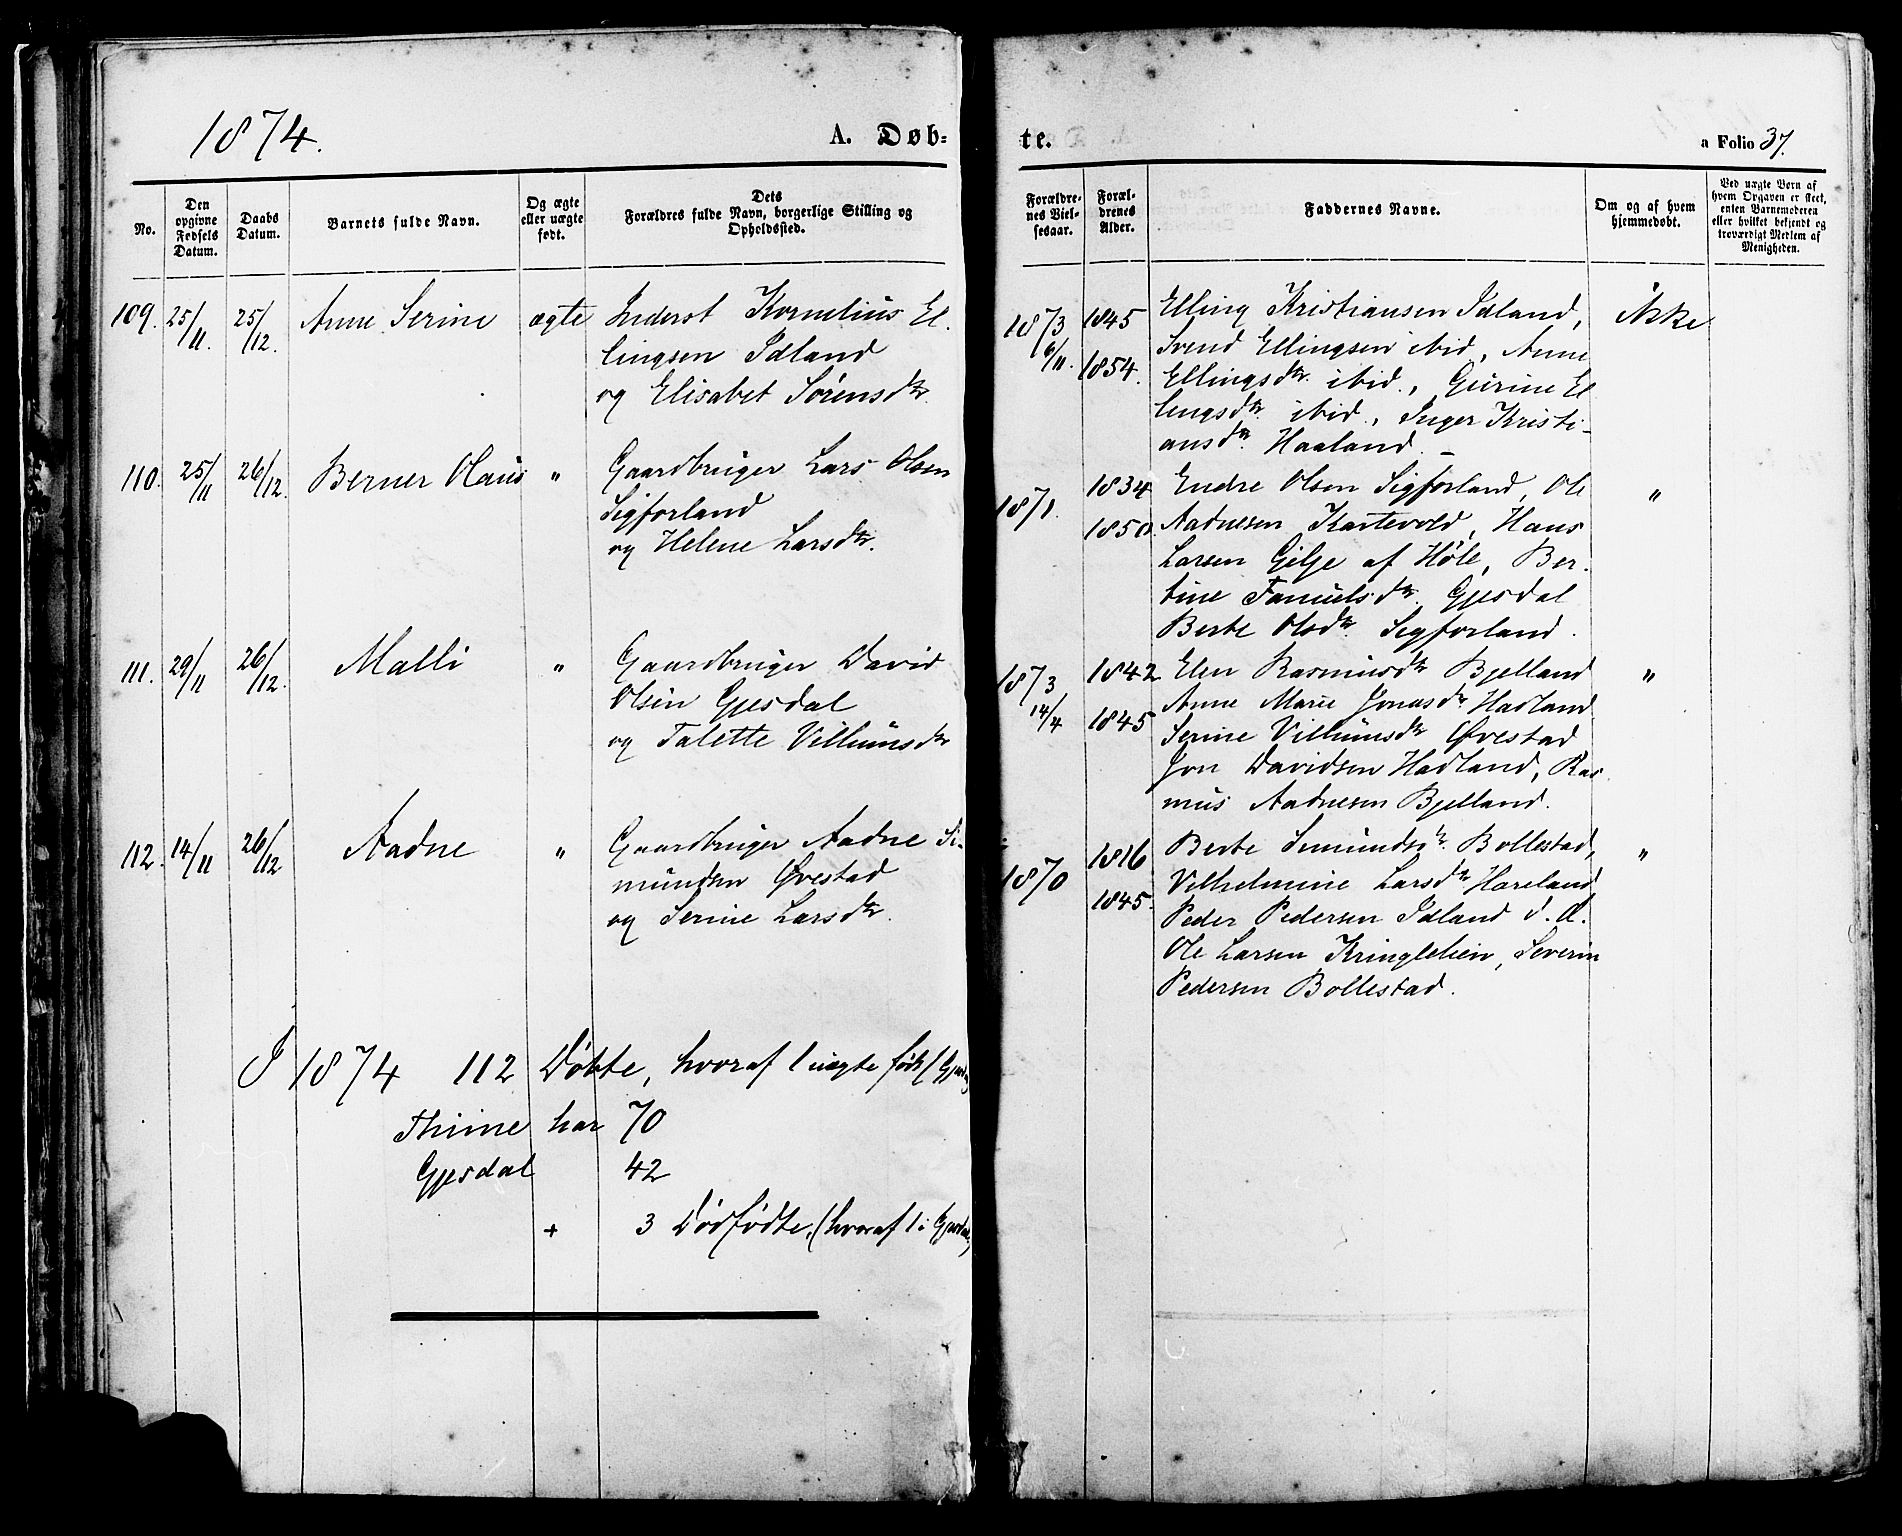 1874.
A. Døb-
te.
a Folio 37.
No.
Den opgivne Fødsels Datum.
Daabs Datum.
Barnets fulde Navn.
Og ægte eller uægte født.
Dets Forældres fulde Navn, borgerlige Stilling og Opholdssted.
Forældre-nes Viel-sesaar.
Foræl-drenes Alder.
Faddernes Navne.
Om og af hvem hjemmedøbt.
Ved uægte Børn af hvem Opgaven er skeet, enten Barnemoderen eller hvilket bekjendt og troværdigt Medlem af Menigheden.
109. 25/11. 25/12. Anne Serine ægte Inderst Kornelius El-
lingsen Idland
og Elisabet Sørensdtr.
1873 6/11. 1845 1854.
Elling Kristiansen Idland,
Svend Ellingsen ibid, Anne
Ellingsdtr. ibid., Gurine El
lingsdtr. ibid., Inger Kristi-
ansdtr. Haaland.
Ikke
110. 25/11 26/12. Berner Olaus " Gaardbruger Lars Olsen
Sigforland
og Helene Larsdtr.
1871. 1834 1850.
Endre Olsen Sigforland, Ole
Aadnesen Kartevold, Hans
Larsen Gilje af Høle, Ber-
tine Samuelsdtr. Gjesdal
Berte Olsdtr. Sigforland.
"
111. 29/11 26/12. Malli " Gaardbruger David
Olsen Gjesdal
og Talette Villumsdtr
1873 14/4 1842 1845
Elen Rasmusdtr Bjelland
Anne Marie Jonasdtr Hadland
Serine Villumsdtr Øvestad
Jon Davidsen Hadland, Ras
mus Aadnesen Bjelland.
"
112. 14/11 26/12 Aadne " Gaardbruger Aadne Si-
mundsen Øvestad
og Serine Larsdtr.
1870 1816 1845.
Berte Simundsdtr. Bollestad,
Vilhelmine Larsdtr Hareland
Peder Pedersen Idland d. Æ.
Ole Larsen Kringleleien, Severin
Pedersen Bollestad.
"
I 1874 112 Døbte, hvoraf 1 uægte født (Gjesdal)
Thime har 70
Gjesdal 42
+ 3 Dødfødte, (hvoraf 1 i Gjesdal)